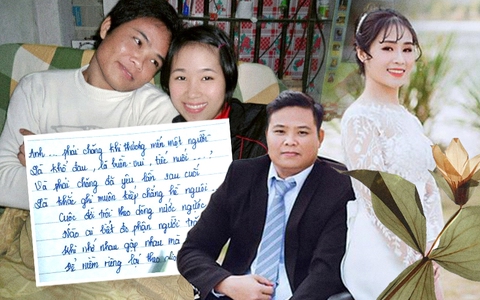 Anh ... phải chăng khi thương mến một người
Là khổ đau, là buồn vui, tức nuối
Và phải chăng đã yêu lần sau cuối
Là khắc ghi muôn kiếp chẳng hề nguôi
Cuộc đời trôi theo dòng nước ngược
Nào ai biết do phận người
Khi nhớ nhau gặp nhau mà
kẻ niềm riêng lại theo